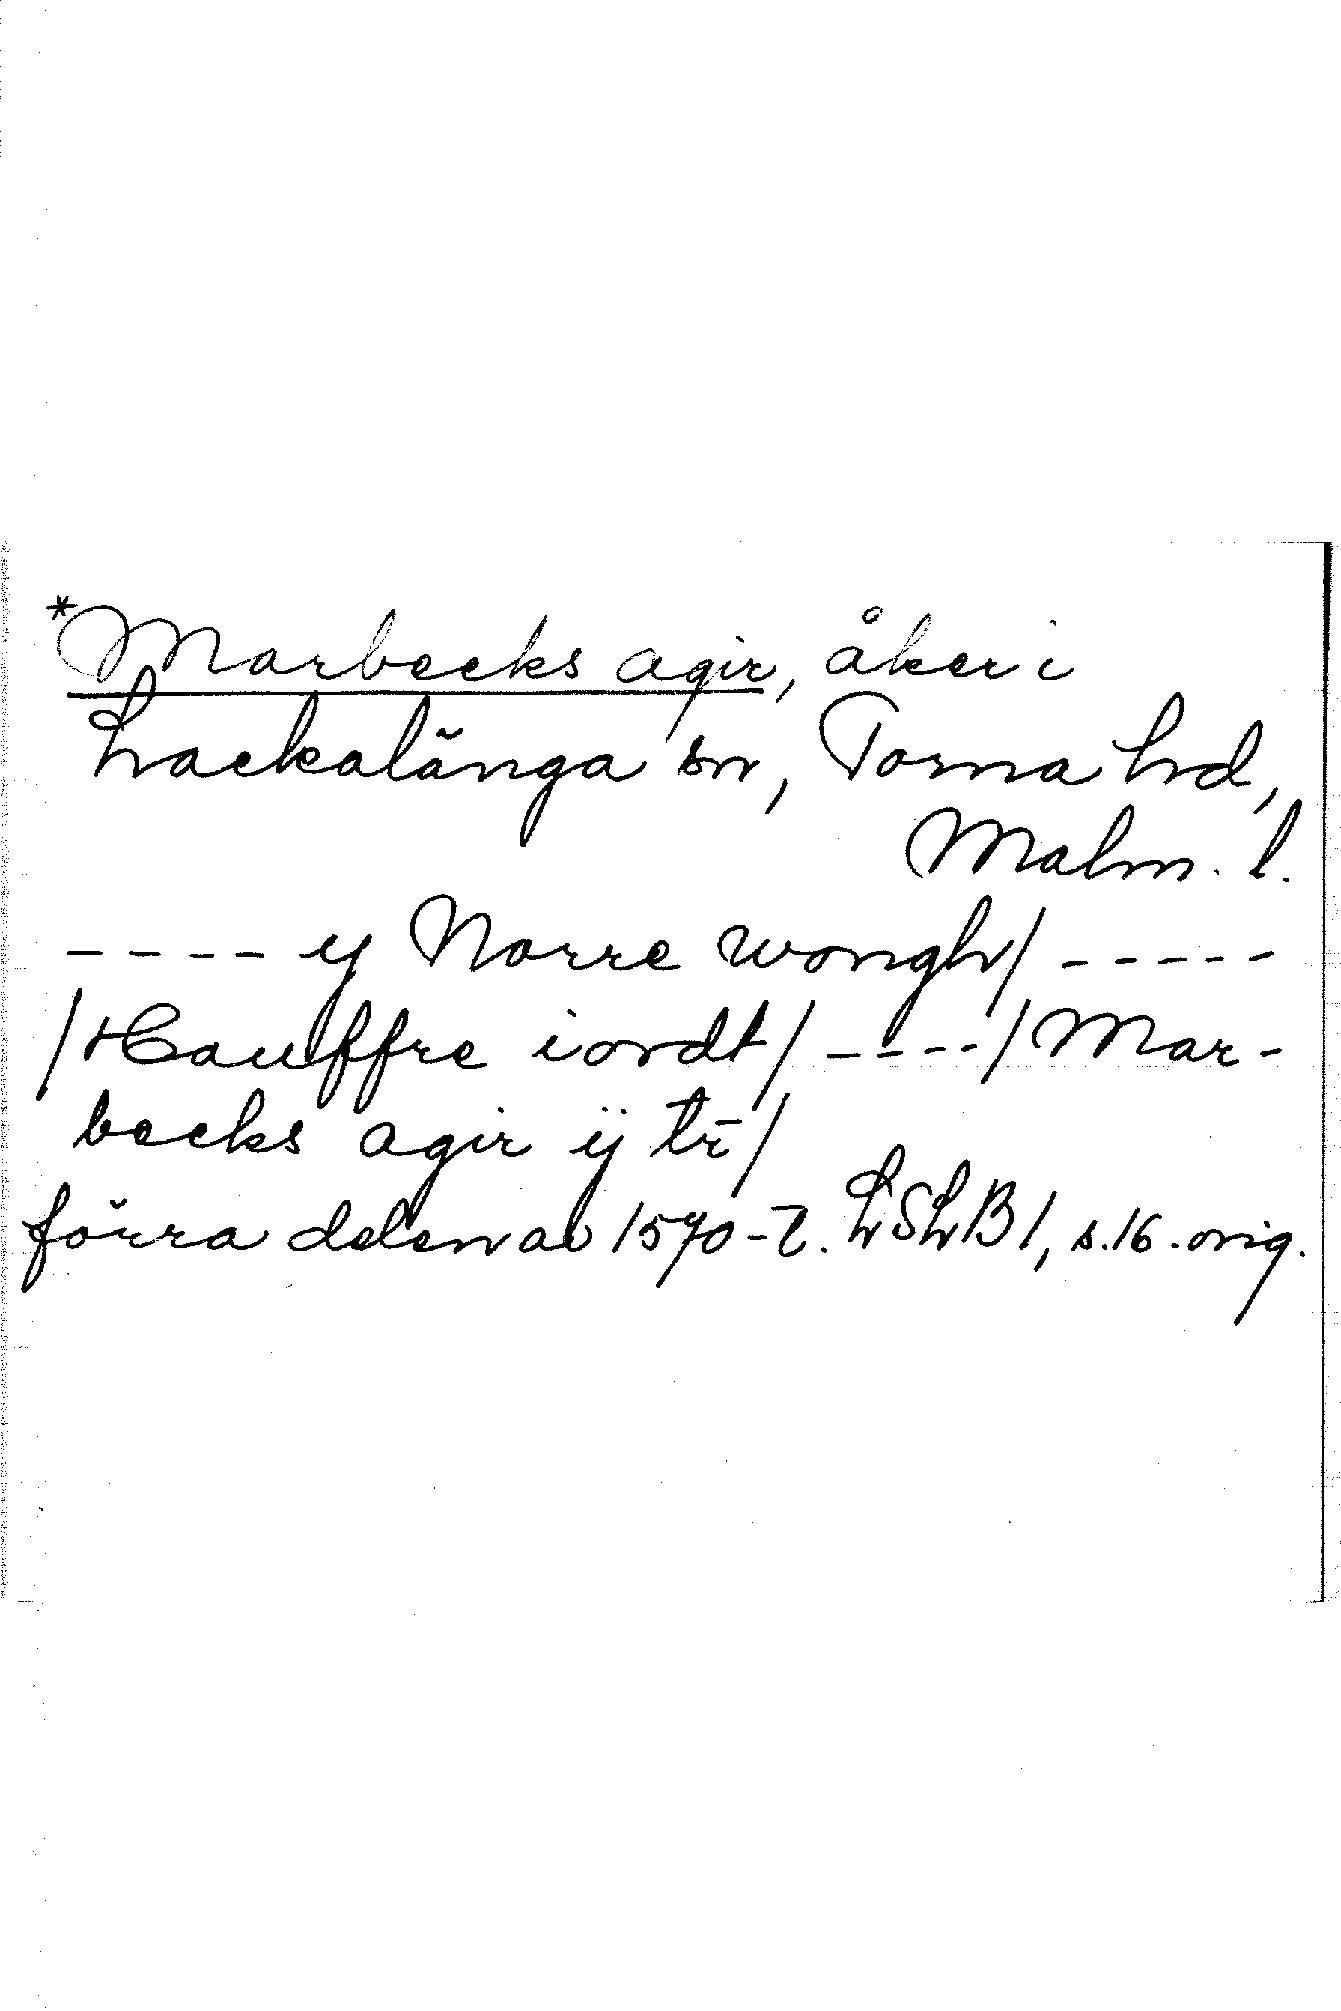 *Marbecks agir, åker i
Hackalänga sn, Torna hd,
Malm. l.
---- y Norre wongh/ -----
/Hauffre iordt/ ----/ Mar-
becks agir ij tr̄/
förra delen av 1570-t. LSLB 1, s. 16. orig.